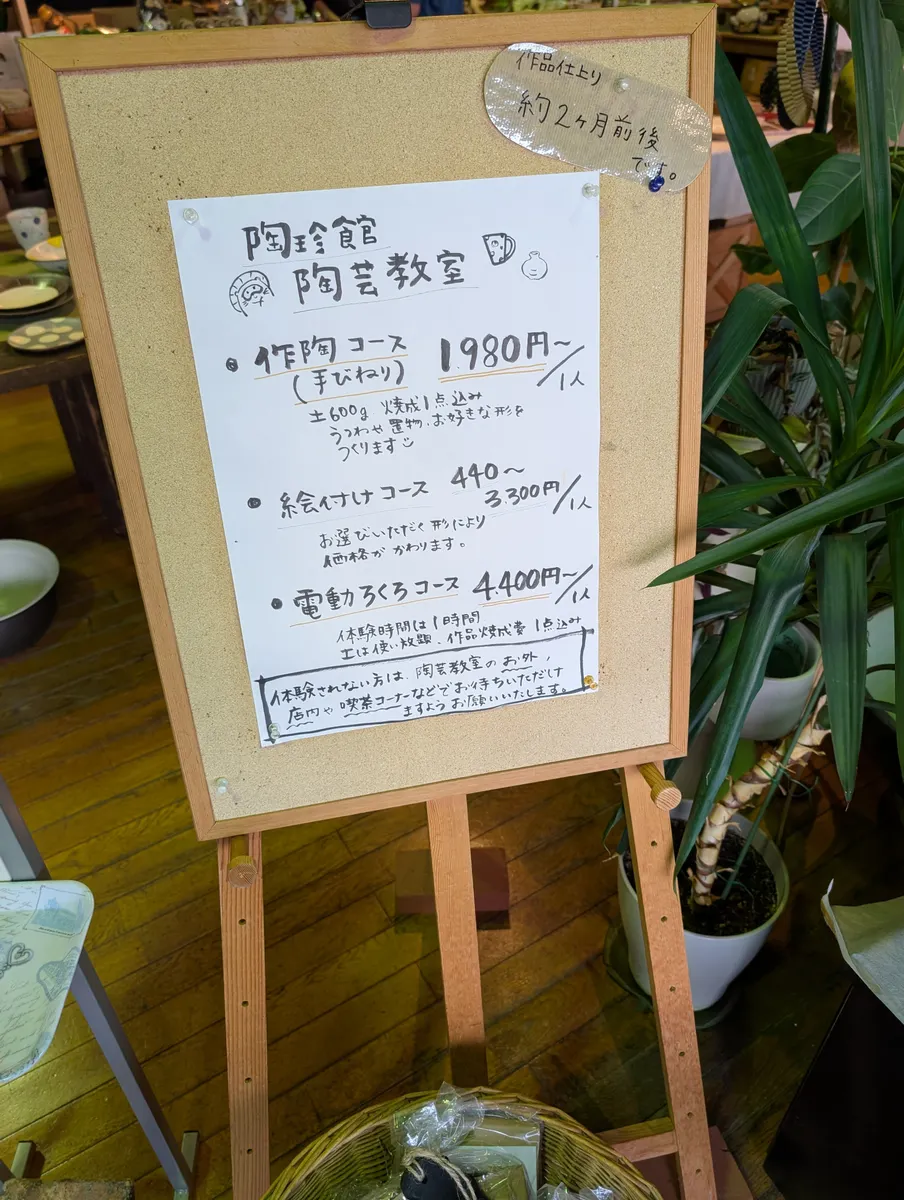 作品仕上り
約2ヶ月前後
です。
陶珍館
陶芸教室
• 作陶コース 1.980円~/1人
(手びねり)
土600g 焼成1点込み
うつわや置物、お好きな形を
つくります
• 絵付けコース 440~
3.300円/1人
お選びいただく形により
価格がかわります。
• 電動ろくろコース 4.400円~/1人
体験時間は1時間
土は使い放題、作品焼成費1点込み
体験されない方は、陶芸教室のお外、
店内や喫茶コーナーなどでお待ちいただけ
ますようお願いいたします。